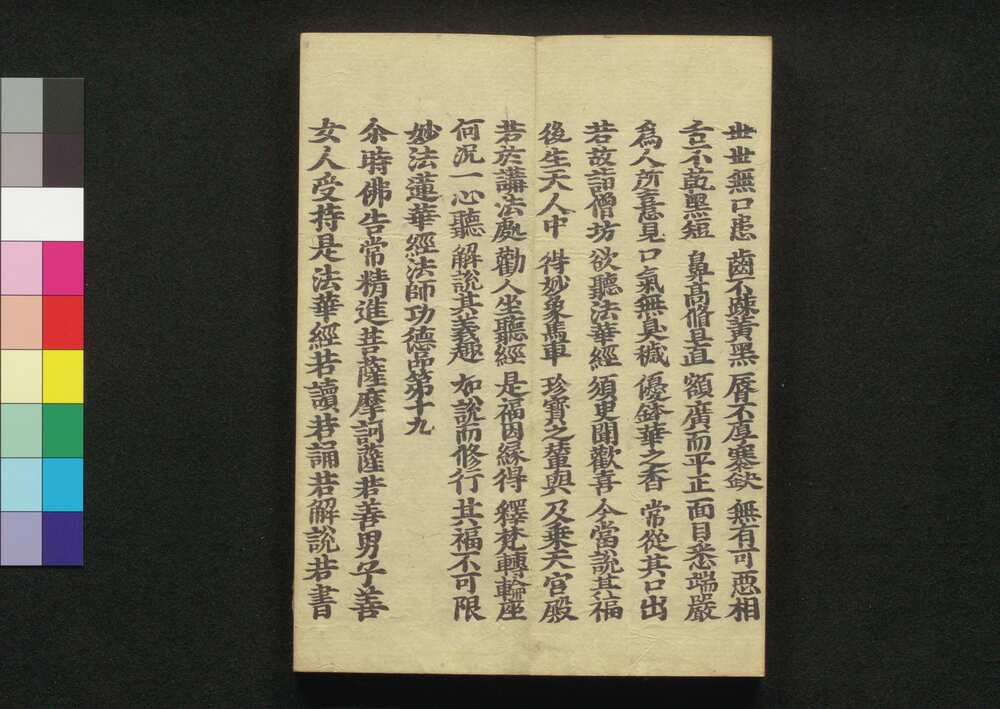 世世無口患 齒不踈黃黑 脣不厚褰缺 無有可惡相
舌不乾黑短 鼻高脩且直 額廣而平正 面目悉端嚴
爲人所憙見 口氣無臭穢 優鉢華之香 常從其口出
若故詣僧坊 欲聽法華經 須臾聞歡喜 今當說其福
後生天人中 得妙象馬車 珍寶之輦輿 及乗天宮殿
若於講法處 勸人坐聽經 是福因緣得 釋梵轉輪座
何況一心聽 解說其義趣 如說而脩行 其福不可限
妙法蓮華經法師功德品第十九
尒時佛告常精進菩薩摩訶薩若善男子善
女人受持是法華經若讀若誦若解說若書